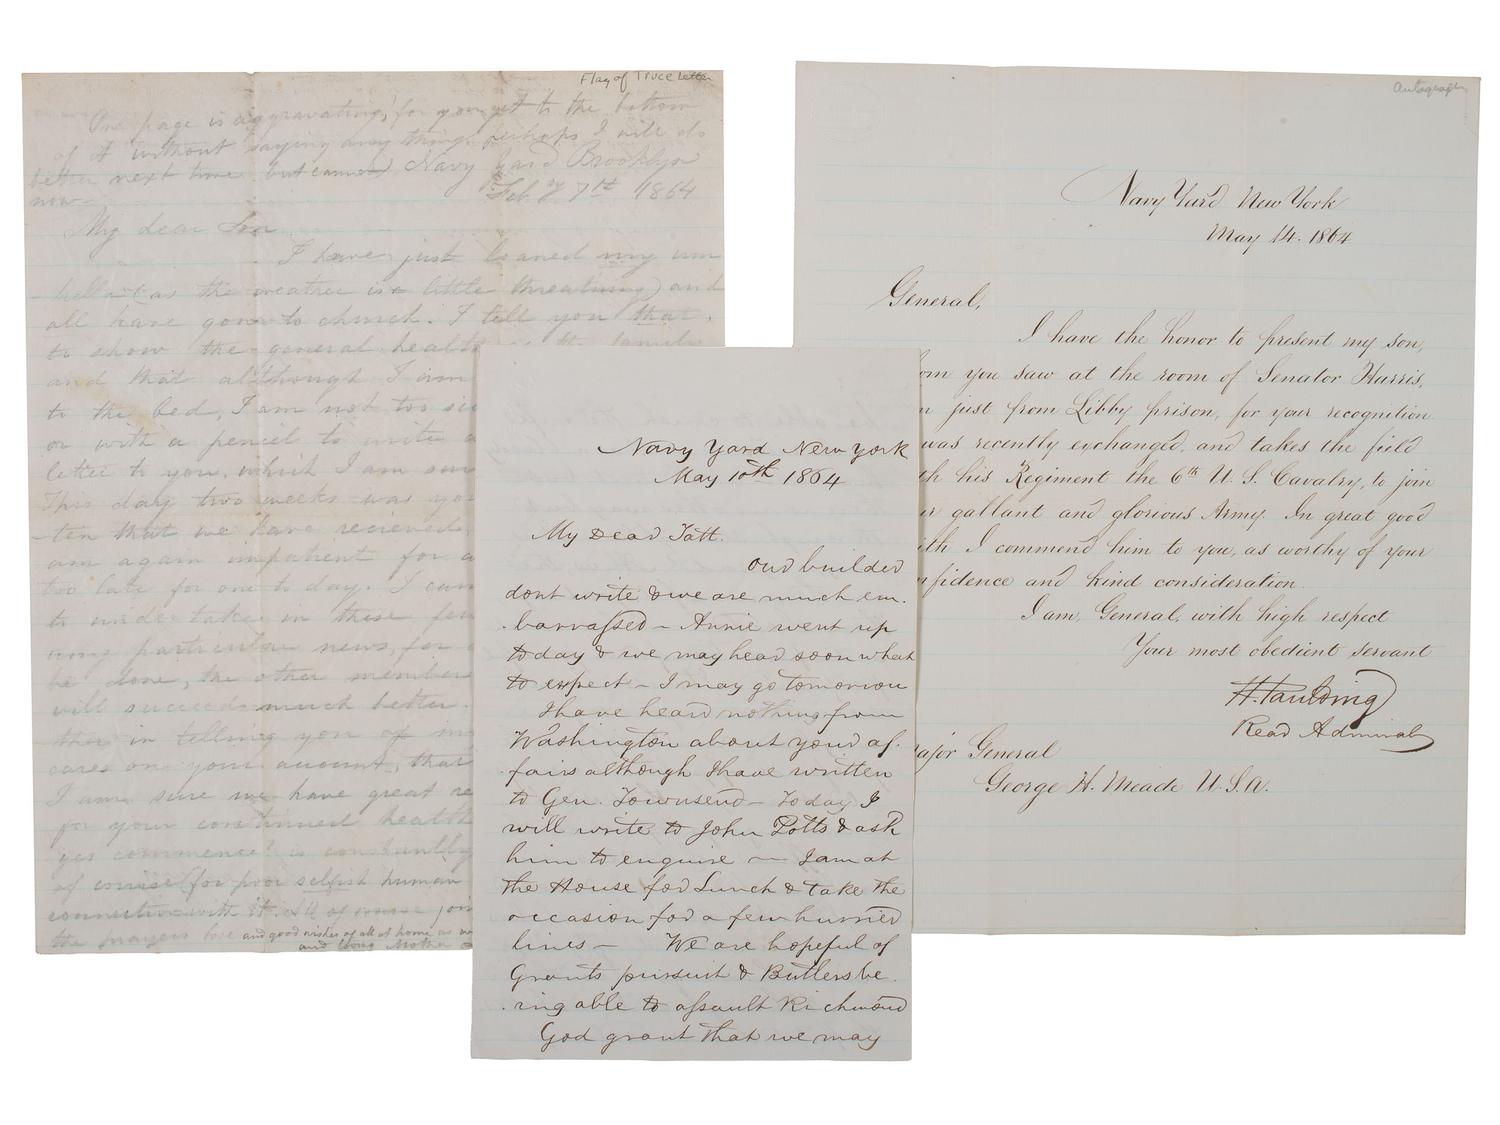 Flag of Truce Letter
One page is aggravating, for you get to the bottom
of it without saying any thing. perhaps I will do
better next time but cannot Navy Yard Brooklyn
now Feby 7th 1864
My dear Son
I have just loaned my um
brella (as the weather is a little threatning) and
all have gone to church. I tell you that,
to show the general health of the family
and that although I am
to the bed, I am not too
or with a pencil to write a
letter to you, which I am
This day two weeks was
-ten that we have recieved,
am again impatient for a
too late for one to day. I
to under take in these few
particular news, for
be done, the other member
will succeed much better.
in telling you of
cares on your account, that
I am sure we have great
for your continued health
yes commence! is constantly
of course (for poor selfish human
connective with it. All of course join
the prayers love and good wishes of all at home
and loving Mother
Navy Yard New York
May 10th 1864
My Dear Tatt.
Our builder
dont write & we are much em.
barrassed – Annie went up
today & we may hear soon what
to expect – I may go tomorrow
I have heard nothing from
Washington about your af.
fairs although I have written
to Gen. Townsend – Today I
will write to John Potts & ask
him to enquire – I am at
the House for Lunch & take the
occasion for a few hurried
lines – We are hopeful of
Grants pursuit & Butlers be.
ing able to assault Richmond
God grant that we may
Autograph
Navy Yard New York
May 14. 1864
General,
I have the honor to present my son,
om you saw at the room of Senator Harris,
n just from Libby prison, for your recognition.
was recently exchanged, and takes the field
th his Regiment the 6th U. S. Cavalry, to join
r gallant and glorious Army. In great good
ith I commend him to you, as worthy of your
fidence and kind consideration.
I am, General, with high respect
Your most obedient servant
H. Paulding
Rear Admiral
ajor General
George H. Meade U.S.A.